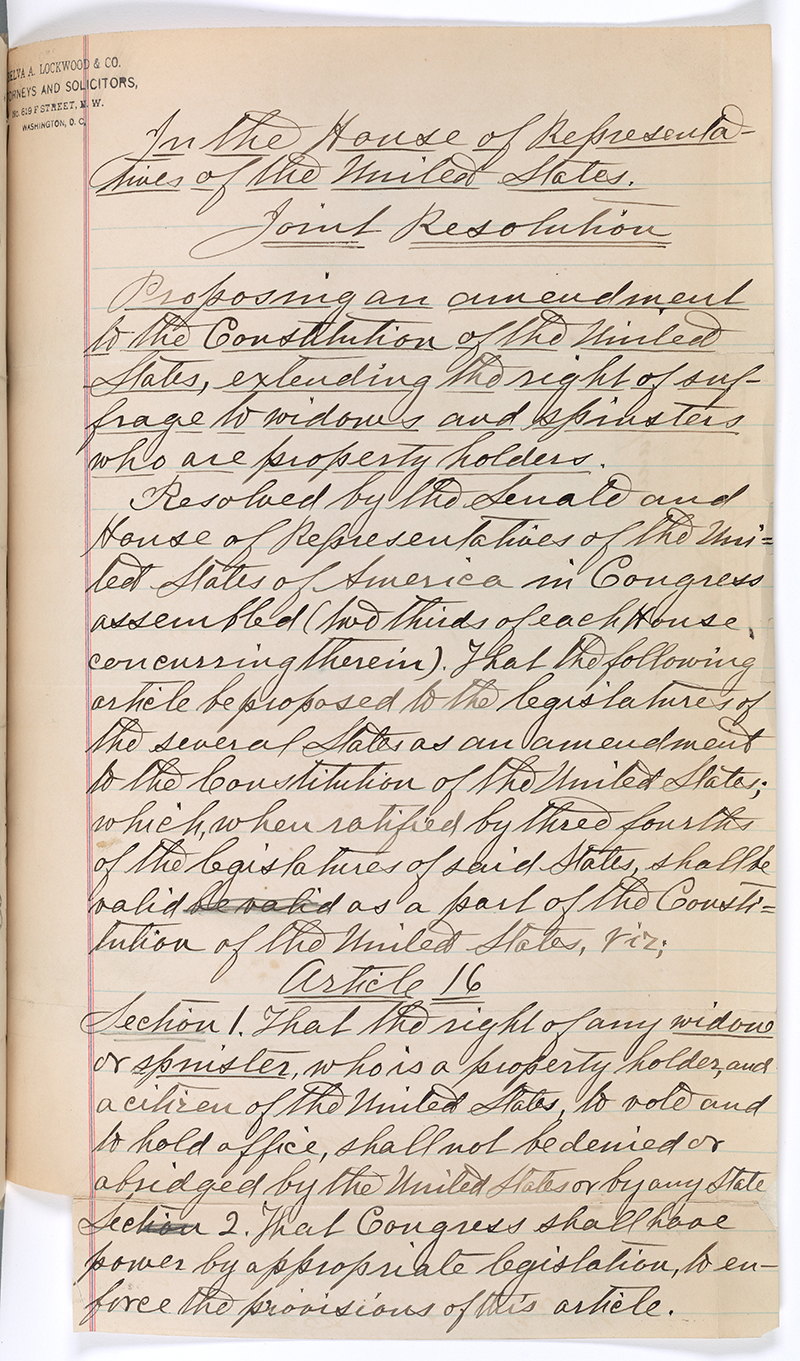 ELVA A. LOCKWOOD & CO.
ORNEYS AND SOLICITORS,
No. 619 F STREET, N. W.
WASHINGTON, D. C.
In the House of Representa-
tives of the United States.
Joint Resolution
Proposing an amendment
to the Constitution of the United
States, extending the right of suf-
frage to widows and spinsters
who are property holders.
Resolved by the Senate and
House of Representatives of the Uni=
ted States of America in Congress
assembled (two thirds of each House
concurring therein). That the following
article be proposed to the legislatures of
the several States as an amendment
to the Constitution of the United States;
which, when ratified by three fourths
of the legislatures of said States, shall be
valid be valid as a part of the Consti=
tution of the United States, viz;
Article 16
Section 1. That the right of any widow
or spinister, who is a property holder, and
a citizen of the United States, to vote and
to hold office, shall not be denied or
abridged by the United States or by any State
Section 2. That Congress shall have
power by appropriate legislation, to en-
force the provisions of this article.